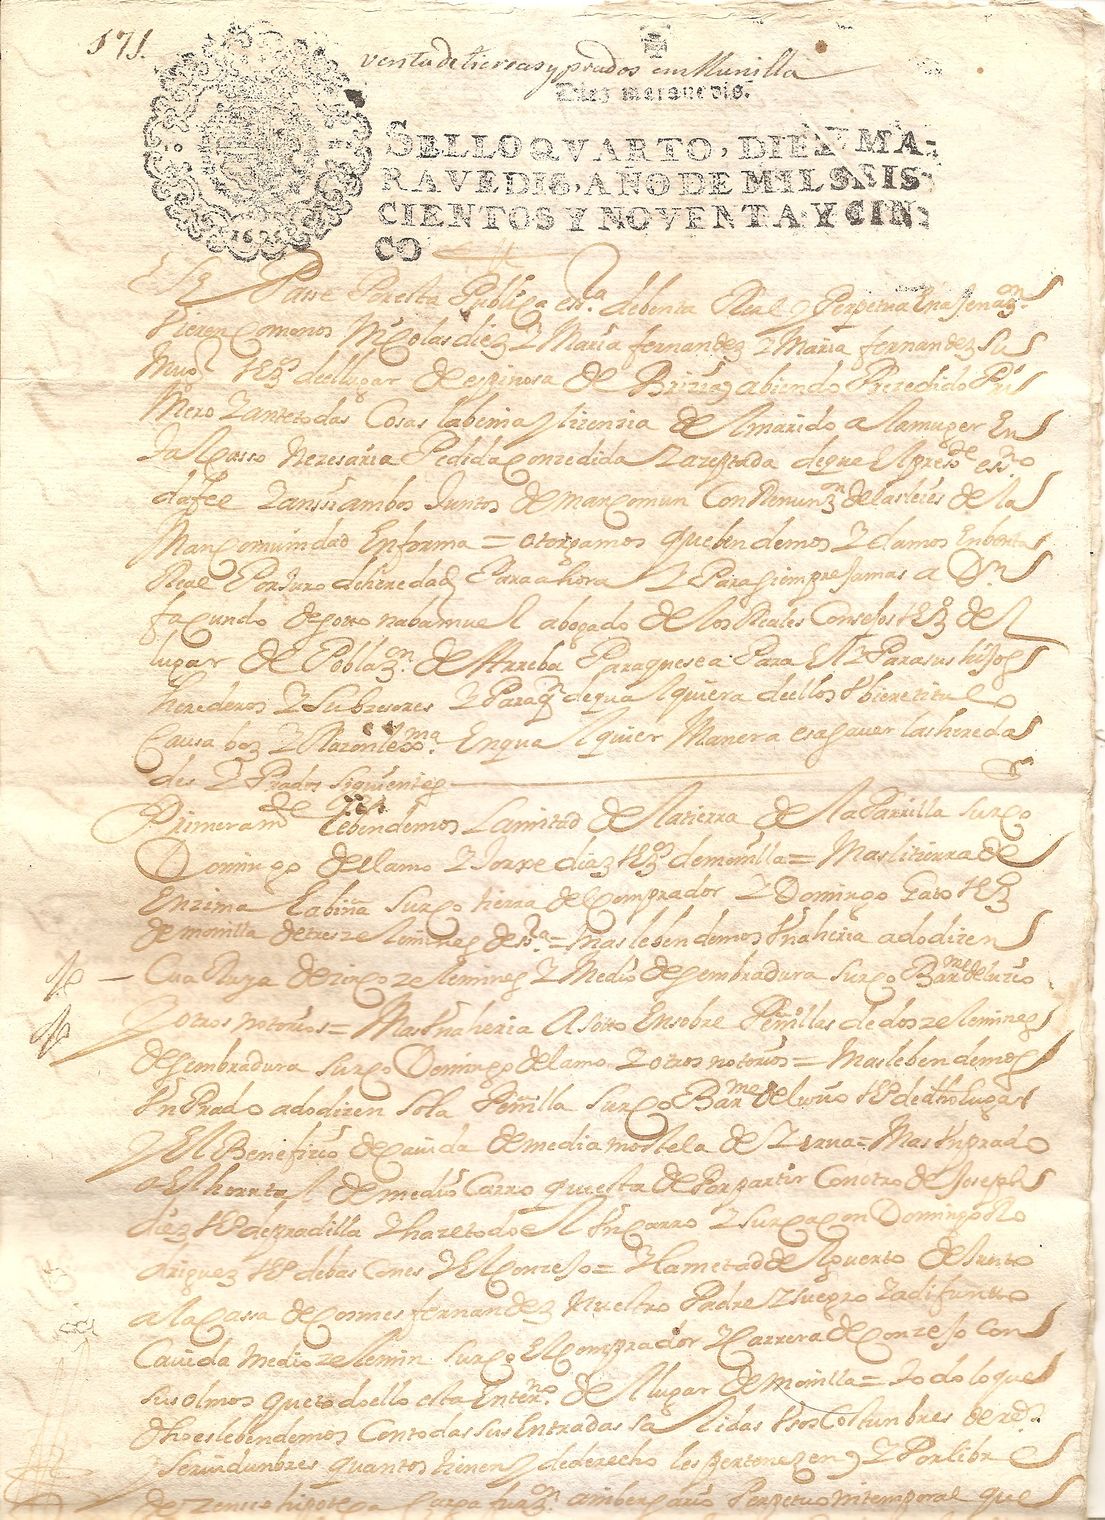 171.
venta de tierras y prados en Munilla
Diez maravedis.
SELLO QVARTO, DIEZ MA-
RAVEDIS, AÑO DE MIL SEIS
CIENTOS Y NOVENTA Y CIN-
CO
1695
Passe Por esta Publica essra. de benta Real y Perpetua Enajenaon
Vieren Como nos Nicolas diez Y Maria fernandez Y Maria fernandez Su
Muger Vezos del lugar de espinosa de Brizia abiendo Prezedido Pri
Mero Y ante todas Cosas la benia y lizenzia de el marido a la muger En
tal Casso nezesaria Pedida Conzedida Y azeptada de que el presente essno
da fee Y ansi ambos Juntos de mancomun Con Renunzon de las leies de la
Mancomunidad En forma = otorgamos que bendemos Y damos En benta
Real Por Juro de heredad Para ahora Y Para siempre Jamas a Dn
facundo de porras nabamuel abogado de los Reales Consejos Vezo del
lugar de Poblazon de Arreba Para que sea Para el Y Para sus hijos
herederos Y Subzesores Y Para quien de qualquiera de ellos Vbiere titulo
Causa boz Y Razon lexma En qualquier Manera es a saver las hereda
des Y Prados siguientes
Primeramte le bendemos La mitad de la tierra de la Parrilla surco
Domingo del alamo Y Jorxe diaz Vezos de monilla = Mas la tierra de
Enzima la biña Surco tierra del Comprador Y Domingo Gato Vezo
de monilla de tres zelemines de = mas le bendemos Vna heria a do dizen
de zinco zelemines Y Medio de sembradura surco Barme del rio
Y otros notorios = Mas Vna heria a soto En sobre Penillas de dos zelemines
de sembradura surco Domingo del alamo Y otros notorios = Mas le bendemos
Vn Prado a do dizen Sola Penilla surco Barme del rio Vezo de dho lugar
Y El Benefizio de cavida de media mostela de Yerua = Mas Vn prado
a El horntal de medio Carro que esta de Por partir Con otro de Joseph
diez Vezo de pradilla Y haze todo el Vn Carro Y surca Con Domingo Ro
driguez Vezo de bascones Y El Conzejo = Y la metad del guerto de Junto
a la Cassa de Cosmes fernandez Nuestro Padre Y suegro Ya difunto
Cavida medio zelemin surco El Comprador Y Carrera de Conzejo Con
sus olmos que todo ello esta En terno de el lugar de monilla = todo lo qual
dho es le bendemos Con todas sus Entradas salidas Vsos Costunbres dere.s
Seruidunbres quantos tienen Y de derecho les pertenezen Y Por libre
de zenso hipoteca Carga aniversario Perpetuo ni temporal que